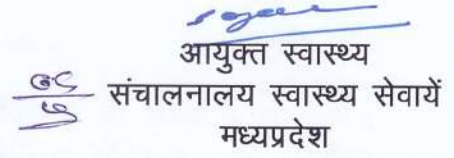 आयुक्त स्वास्थ्य
संचालनालय स्वास्थ्य सेवायें
मध्यप्रदेश